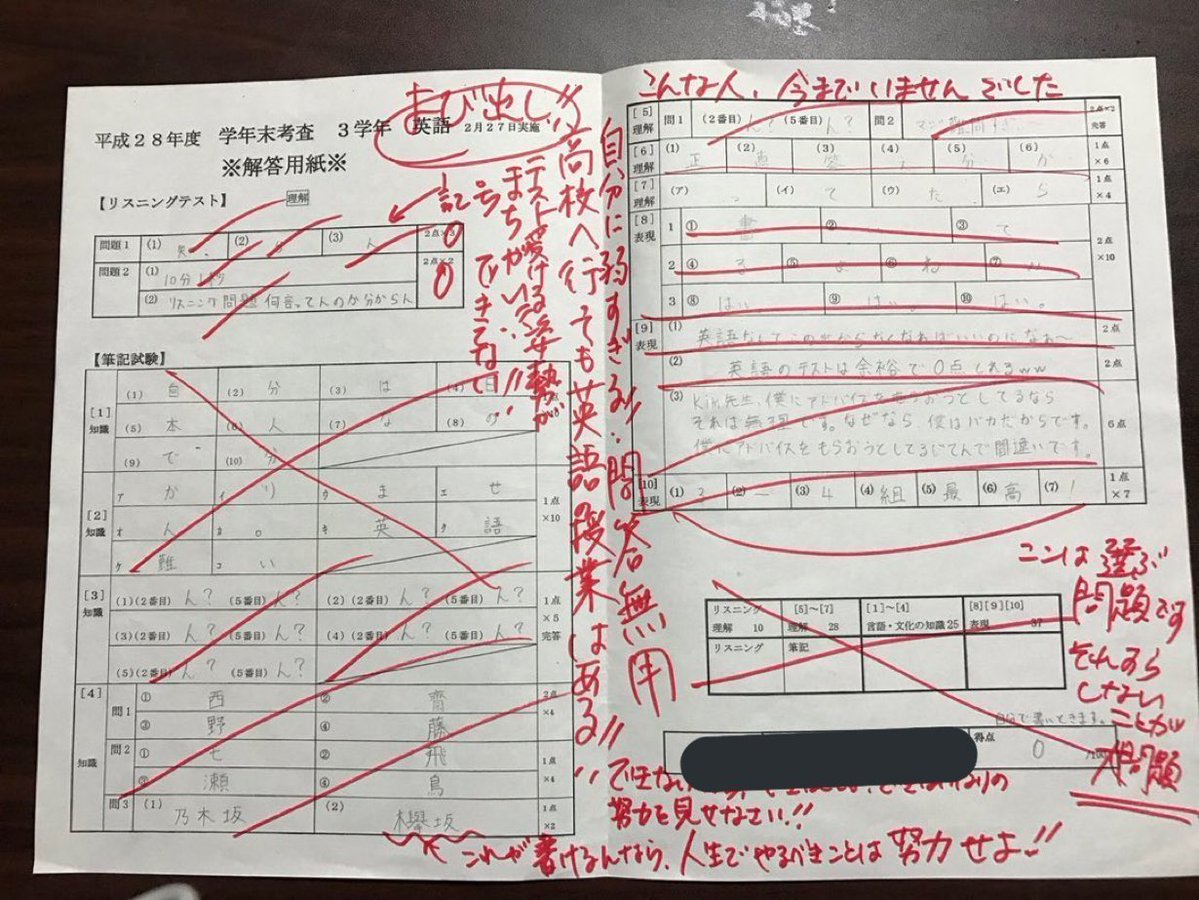 よび出し!!
平成28年度 学年末考査 3学年 英語 2月27日実施
※解答用紙※
【リスニングテスト】 理解
記号
問題1 (1) 矢 (2) (3) ん 2点×3 0
問題2 (1) 10分1秒 2点×2 0
(2) リスニング問題何言ってんのか分からん
【筆記試験】
[1] 知識
(1) 自 (2) 分 (3) は (4) 日
(5) 本 (6) 人 (7) な (8) の
(9) で (10) 分
[2] 知識 1点×10
ア か イ り ウ ま エ せ
オ ん カ 。 キ 英 ク 語
ケ 難 コ い
[3] 知識 1点×5 完答
(1)(2番目) ん? (5番目) ん? (2)(2番目) ん? (5番目) ん?
(3)(2番目) ん? (5番目) ん? (4)(2番目) ん? (5番目) ん?
(5)(2番目) ん? (5番目) ん?
[4] 知識
問1 ① 西 ② 齋 2点×4
③ 野 ④ 藤
問2 ① 七 ② 飛 1点×4
③ 瀬 ④ 鳥
問3 (1) 乃木坂 (2) 欅坂 1点×2
テスト受ける姿勢が
まちがい!
できてない!!
高校へ行っても英語の授業はある!!
自分に弱すぎる!!問答無用
こんな人、今までいませんでした
[5] 理解 問1 (2番目) ん? (5番目) ん? 問2 2点×2 完答
[6] 理解 (1) 正 (2) 直 (3) 答 (4) (5) 分 (6) か 1点×6
[7] 理解 (ア) っ (イ) て (ウ) た (エ) ら 1点×4
[8] 表現 2点×10
1 ① 書 ② ③ て
2 ④ る ⑤ よ ⑥ ね ⑦
3 ⑧ はい ⑨ はい ⑩ はい。
[9] 表現
(1) 英語なんてこの世からなくなればいいのになぁ〜 2点
(2) 英語のテストは余裕で0点とれるww 2点
(3) Kim先生、僕にアドバイスを貰おうとしてるなら
それは無理です。なぜなら 僕はバカだからです。
僕にアドバイスをもらおうとしてるじてんで間違いです。 6点
[10] 表現 (1) 3 (2) ー (3) 4 (4) 組 (5) 最 (6) 高 (7) ! 1点×7
ココは選ぶ
問題です
それすら
しない
ことが
大問題
リスニング [5]~[7] [1]~[4] [8][9][10]
理解 10 理解 28 言語・文化の知識 25 表現 37
リスニング 筆記
自分で書いときます。
得点 0 /100
できない
努力を見せなさい!!
これが書けるんなら、人生でやるべきことは努力せよ!!